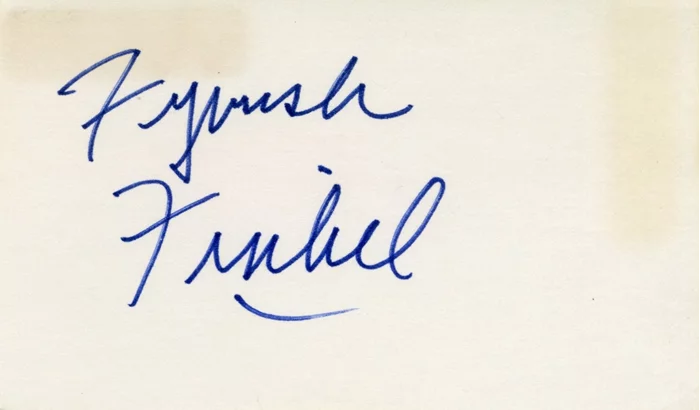 Fyvush
Finkel